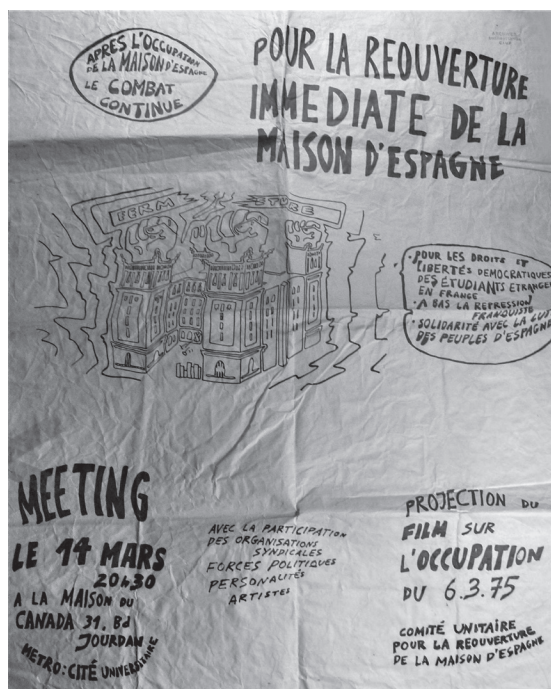 APRÈS L'OCCUPATION
DE LA MAISON D'ESPAGNE
LE COMBAT
CONTINUE
POUR LA REOUVERTURE
IMMEDIATE DE LA
MAISON D'ESPAGNE
FERM
TURE
POUR LES DROITS ET
LIBERTÉS DEMOCRATIQUES
DES ÉTUDIANTS ETRANGER
EN FRANCE
• A BAS LA REPRESSION
FRANQUISTE
• SOLIDARITÉ AVEC LA
DES PEUPLES D'ESPAGNE
MEETING
LE 14 MARS
20h30
A LA MAISON DU
CANADA 31, Bd
JOURDAN
METRO: CITÉ UNIVERSITAIRE
AVEC LA PARTICIPATION
DES ORGANISATIONS
SYNDICALES
FORCES POLITIQUES
PERSONALITÉS
ARTISTES
PROJECTION DU
FILM SUR
L'OCCUPATION
DU 6.3.75
COMITÉ UNITAIRE
POUR LA REOUVERTURE
DE LA MAISON D'ESPAGNE